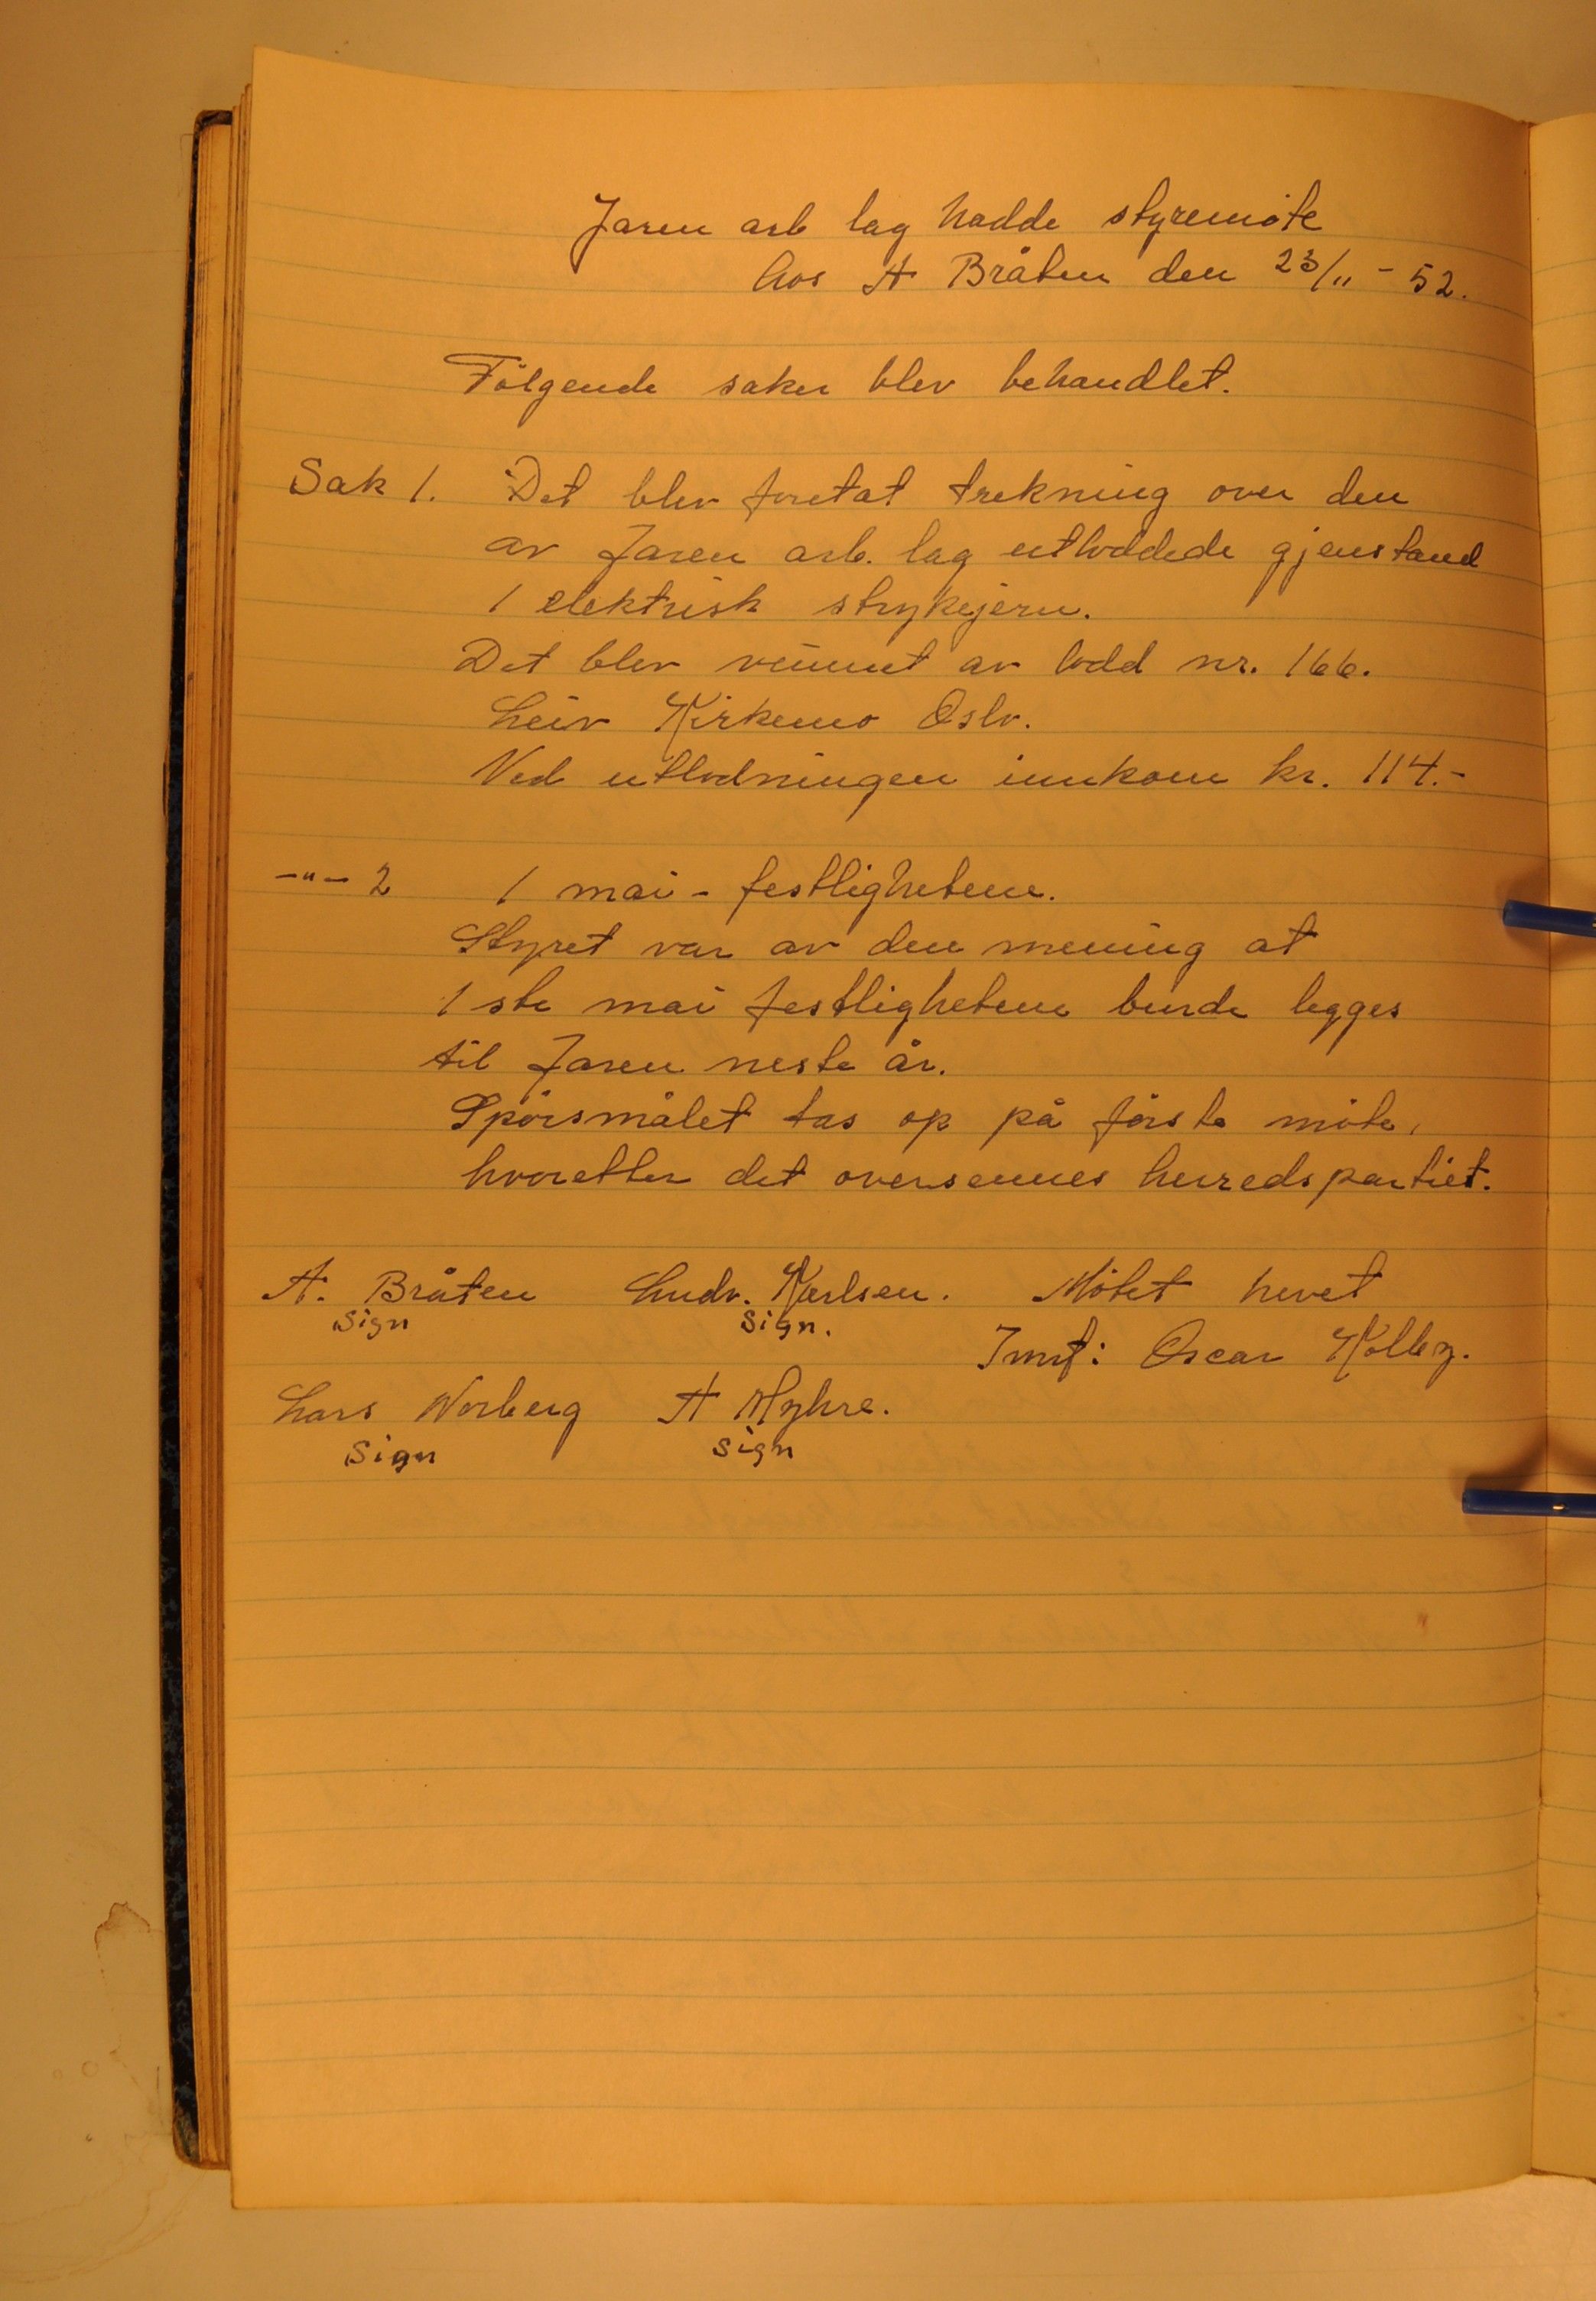 Jaren arb lag hadde styremöte
hos A Bråten den 23/11 - 52.
Fölgende saker blev behandlet.
Sak 1. Det blev foretat trekning over den
av Jaren arb. lag utloddede gjenstand
1 elektrisk strykejern.
Det blev vunnet av lodd nr. 166.
Leiv Kirkemo Oslo.
Ved utlodningen innkom kr. 114.-
-"- 2 1 mai - festlighetene.
Styret var av den mening at
1 ste mai festlighetene burde legges
til Jaren neste år.
Spörsmålet tas op på förste möte,
hvoretter det oversennes herredspartiet.
A. Bråten Ludv. Karlsen. Mötet hevet
Sign Sign.
Oscar Kolby.
Lars Norberg A Myhre.
Sign Sign